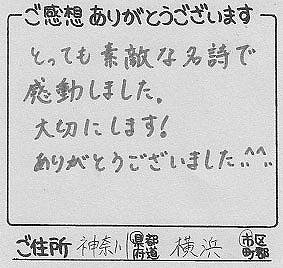 ご感想 ありがとうございます
とっても素敵な名詩で
感動しました。
大切にします!
ありがとうございました..^^..
ご住所 神奈川 都道府県 横浜 市区町郡